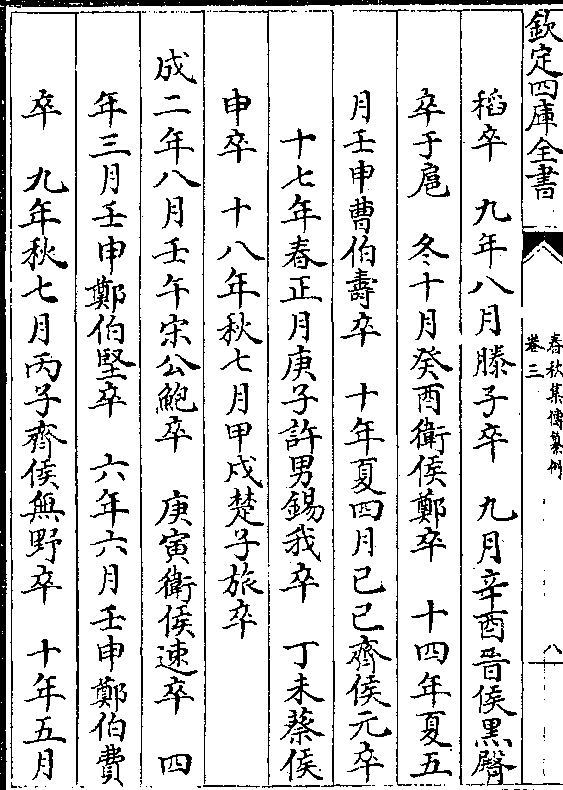 欽定四庫全書
春秋集傳纂例
卷三
八
稻卒　九年八月滕子卒　九月辛酉晉侯黑臀
卒于扈　冬十月癸酉衛侯鄭卒　十四年夏五
月壬申曹伯壽卒　十年夏四月己巳齊侯元卒
十七年春正月庚子許男錫我卒　丁未蔡侯
申卒　十八年秋七月甲戌楚子旅卒
成二年八月壬午宋公鮑卒　庚寅衛侯速卒　四
年三月壬申鄭伯堅卒　六年六月壬申鄭伯費
卒　九年秋七月丙子齊侯無野卒　十年五月